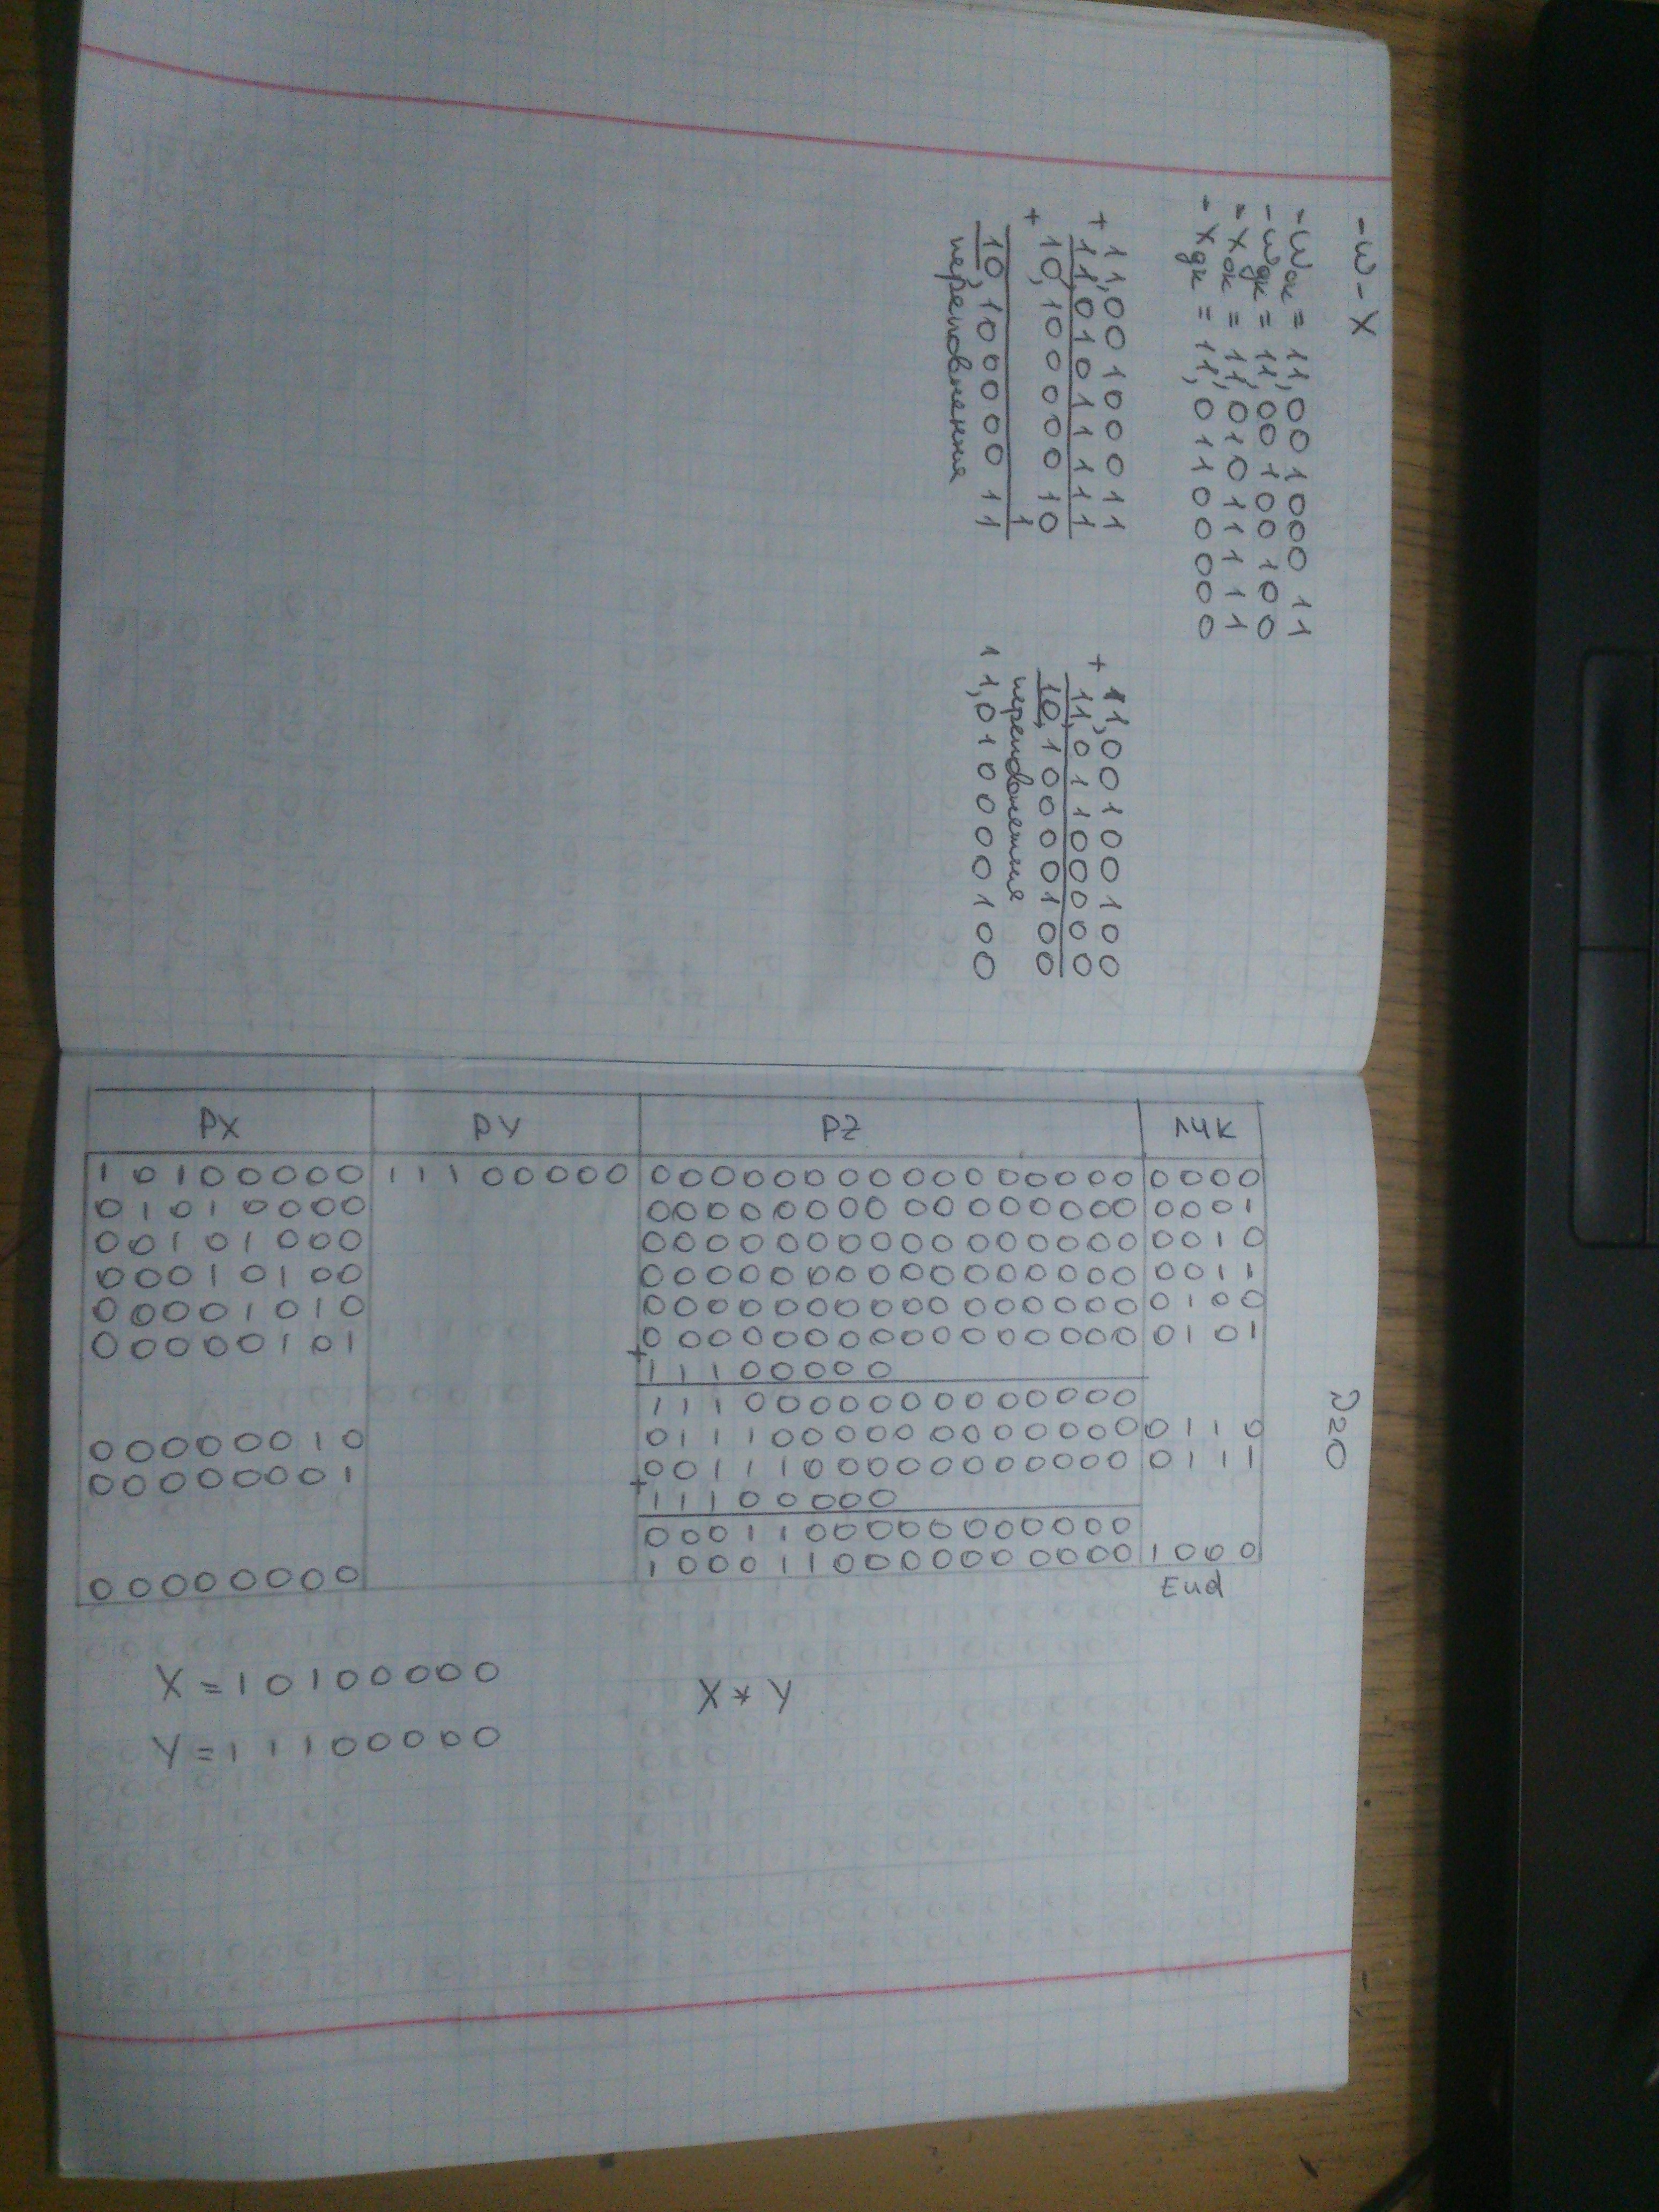 -W-X
-Wок = 11,00100011
-Wдк = 11,00100100
-Xок = 11,01011111
-Xдк = 11,01100000
+ 11,00100011
11,01011111
+ 10,10000010
1
10,10000011
переповнення
+ 11,00100100
11,01100000
10,10000100
переповнення
1 1,010000100
№20
РХ РY РZ ЛЧК
10100000 11100000 0000000000000000 0000
01010000 0000000000000000 0001
00101000 0000000000000000 0010
00010100 0000000000000000 0011
00001010 0000000000000000 0100
00000101 0000000000000000 0101
+ 11100000
1110000000000000
00000010 0111000000000000 0110
00000001 0011100000000000 0111
+ 11100000
0001100000000000
00000000 1000110000000000 1000
End
X=10100000
X*Y
Y=11100000